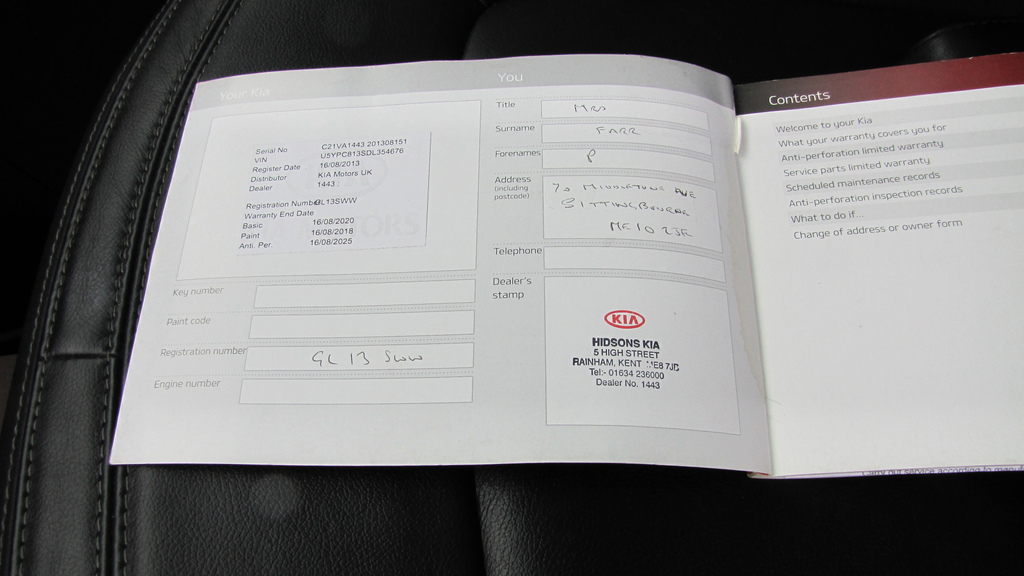 Your Kia
Serial No C21VA1443 201308151
VIN U5YPC813SDL354676
Register Date 16/08/2013
Distributor KIA Motors UK
Dealer 1443 :
Registration Number GL13SWW
Warranty End Date
Basic 16/08/2020
Paint 16/08/2018
Anti. Per. 16/08/2025
Key number
Paint code
Registration number GL 13 SWW
Engine number
You
Title Mrs
Surname FARR
Forenames P
Address
(including
postcode)
AVE
SITTINGBOURNE
ME10 2JE
Telephone
Dealer's
stamp
KIA
HIDSONS KIA
5 HIGH STREET
RAINHAM, KENT ME8 7JD
Tel:- 01634 236000
Dealer No. 1443
Contents
Welcome to your Kia
What your warranty covers you for
Anti-perforation limited warranty
Service parts limited warranty
Scheduled maintenance records
Anti-perforation inspection records
What to do if...
Change of address or owner form
Carry out service according to